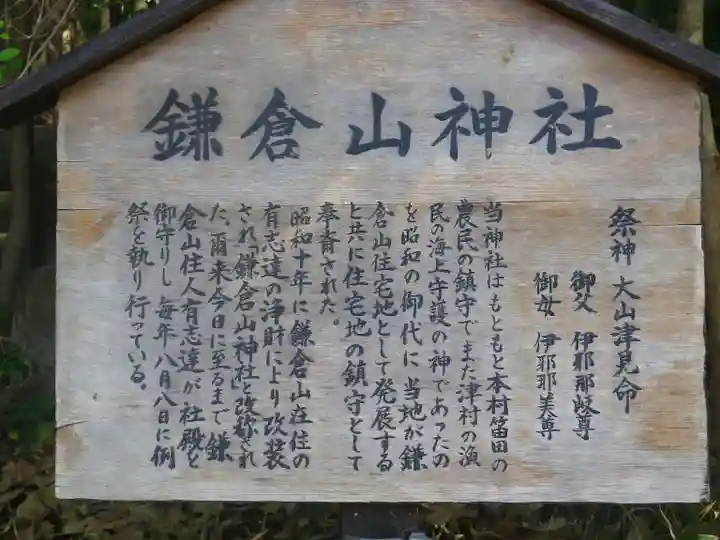 鎌倉山神社
祭神 大山津見命
御父 伊邪那岐尊
御女 伊邪那美尊
当神社はもともと本村笛田の
農民の鎮守でまた津村の漁
民の海上守護の神であったの
を昭和の御代に当地が鎌
倉山住宅地として発展する
と共に住宅地の鎮守として
奉斉された。
昭和十年に鎌倉山在住の
有志達の浄財により改装
され「鎌倉山神社」と改称され
た、爾来今日に至るまで鎌
倉山住人有志達が社殿を
御守りし毎年八月八日に例
祭を執り行っている。